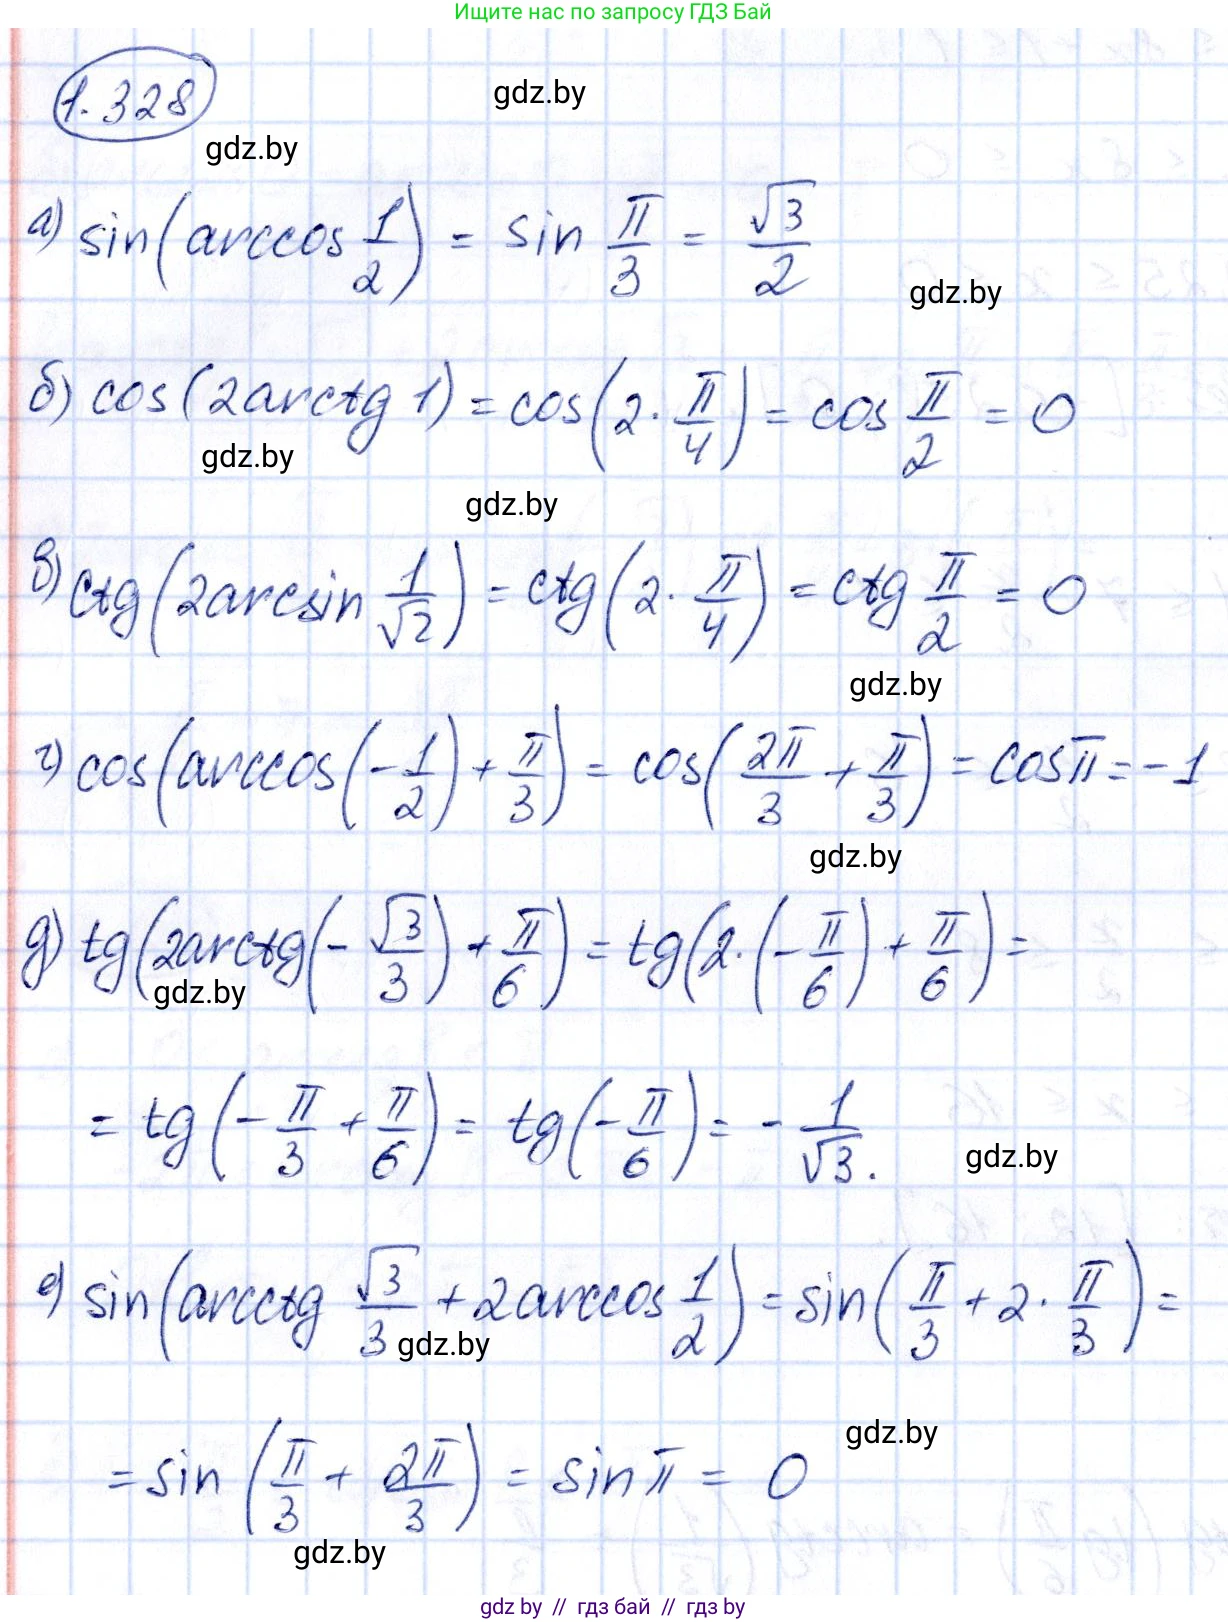 Ищите нас по запросу ГДЗ Бай
1.328
gdz.by
gdz.by
а) sin(arccos 1/2) = sin π/3 = √3/2
gdz.by
б) cos(2arctg 1) = cos(2·π/4) = cos π/2 = 0
gdz.by
gdz.by
в) ctg(2arcsin 1/√2) = ctg(2·π/4) = ctg π/2 = 0
gdz.by
г) cos(arccos(-1/2) + π/3) = cos(2π/3 + π/3) = cosπ = -1
gdz.by
д) tg(2arctg(-√3/3) + π/6) = tg(2·(-π/6) + π/6) =
gdz.by
= tg(-π/3 + π/6) = tg(-π/6) = -1/√3.
gdz.by
е) sin(arcctg √3/3 + 2arccos 1/2) = sin(π/3 + 2·π/3) =
gdz.by
gdz.by
= sin(π/3 + 2π/3) = sinπ = 0
gdz.by
gdz by // гдз бай // gdz by